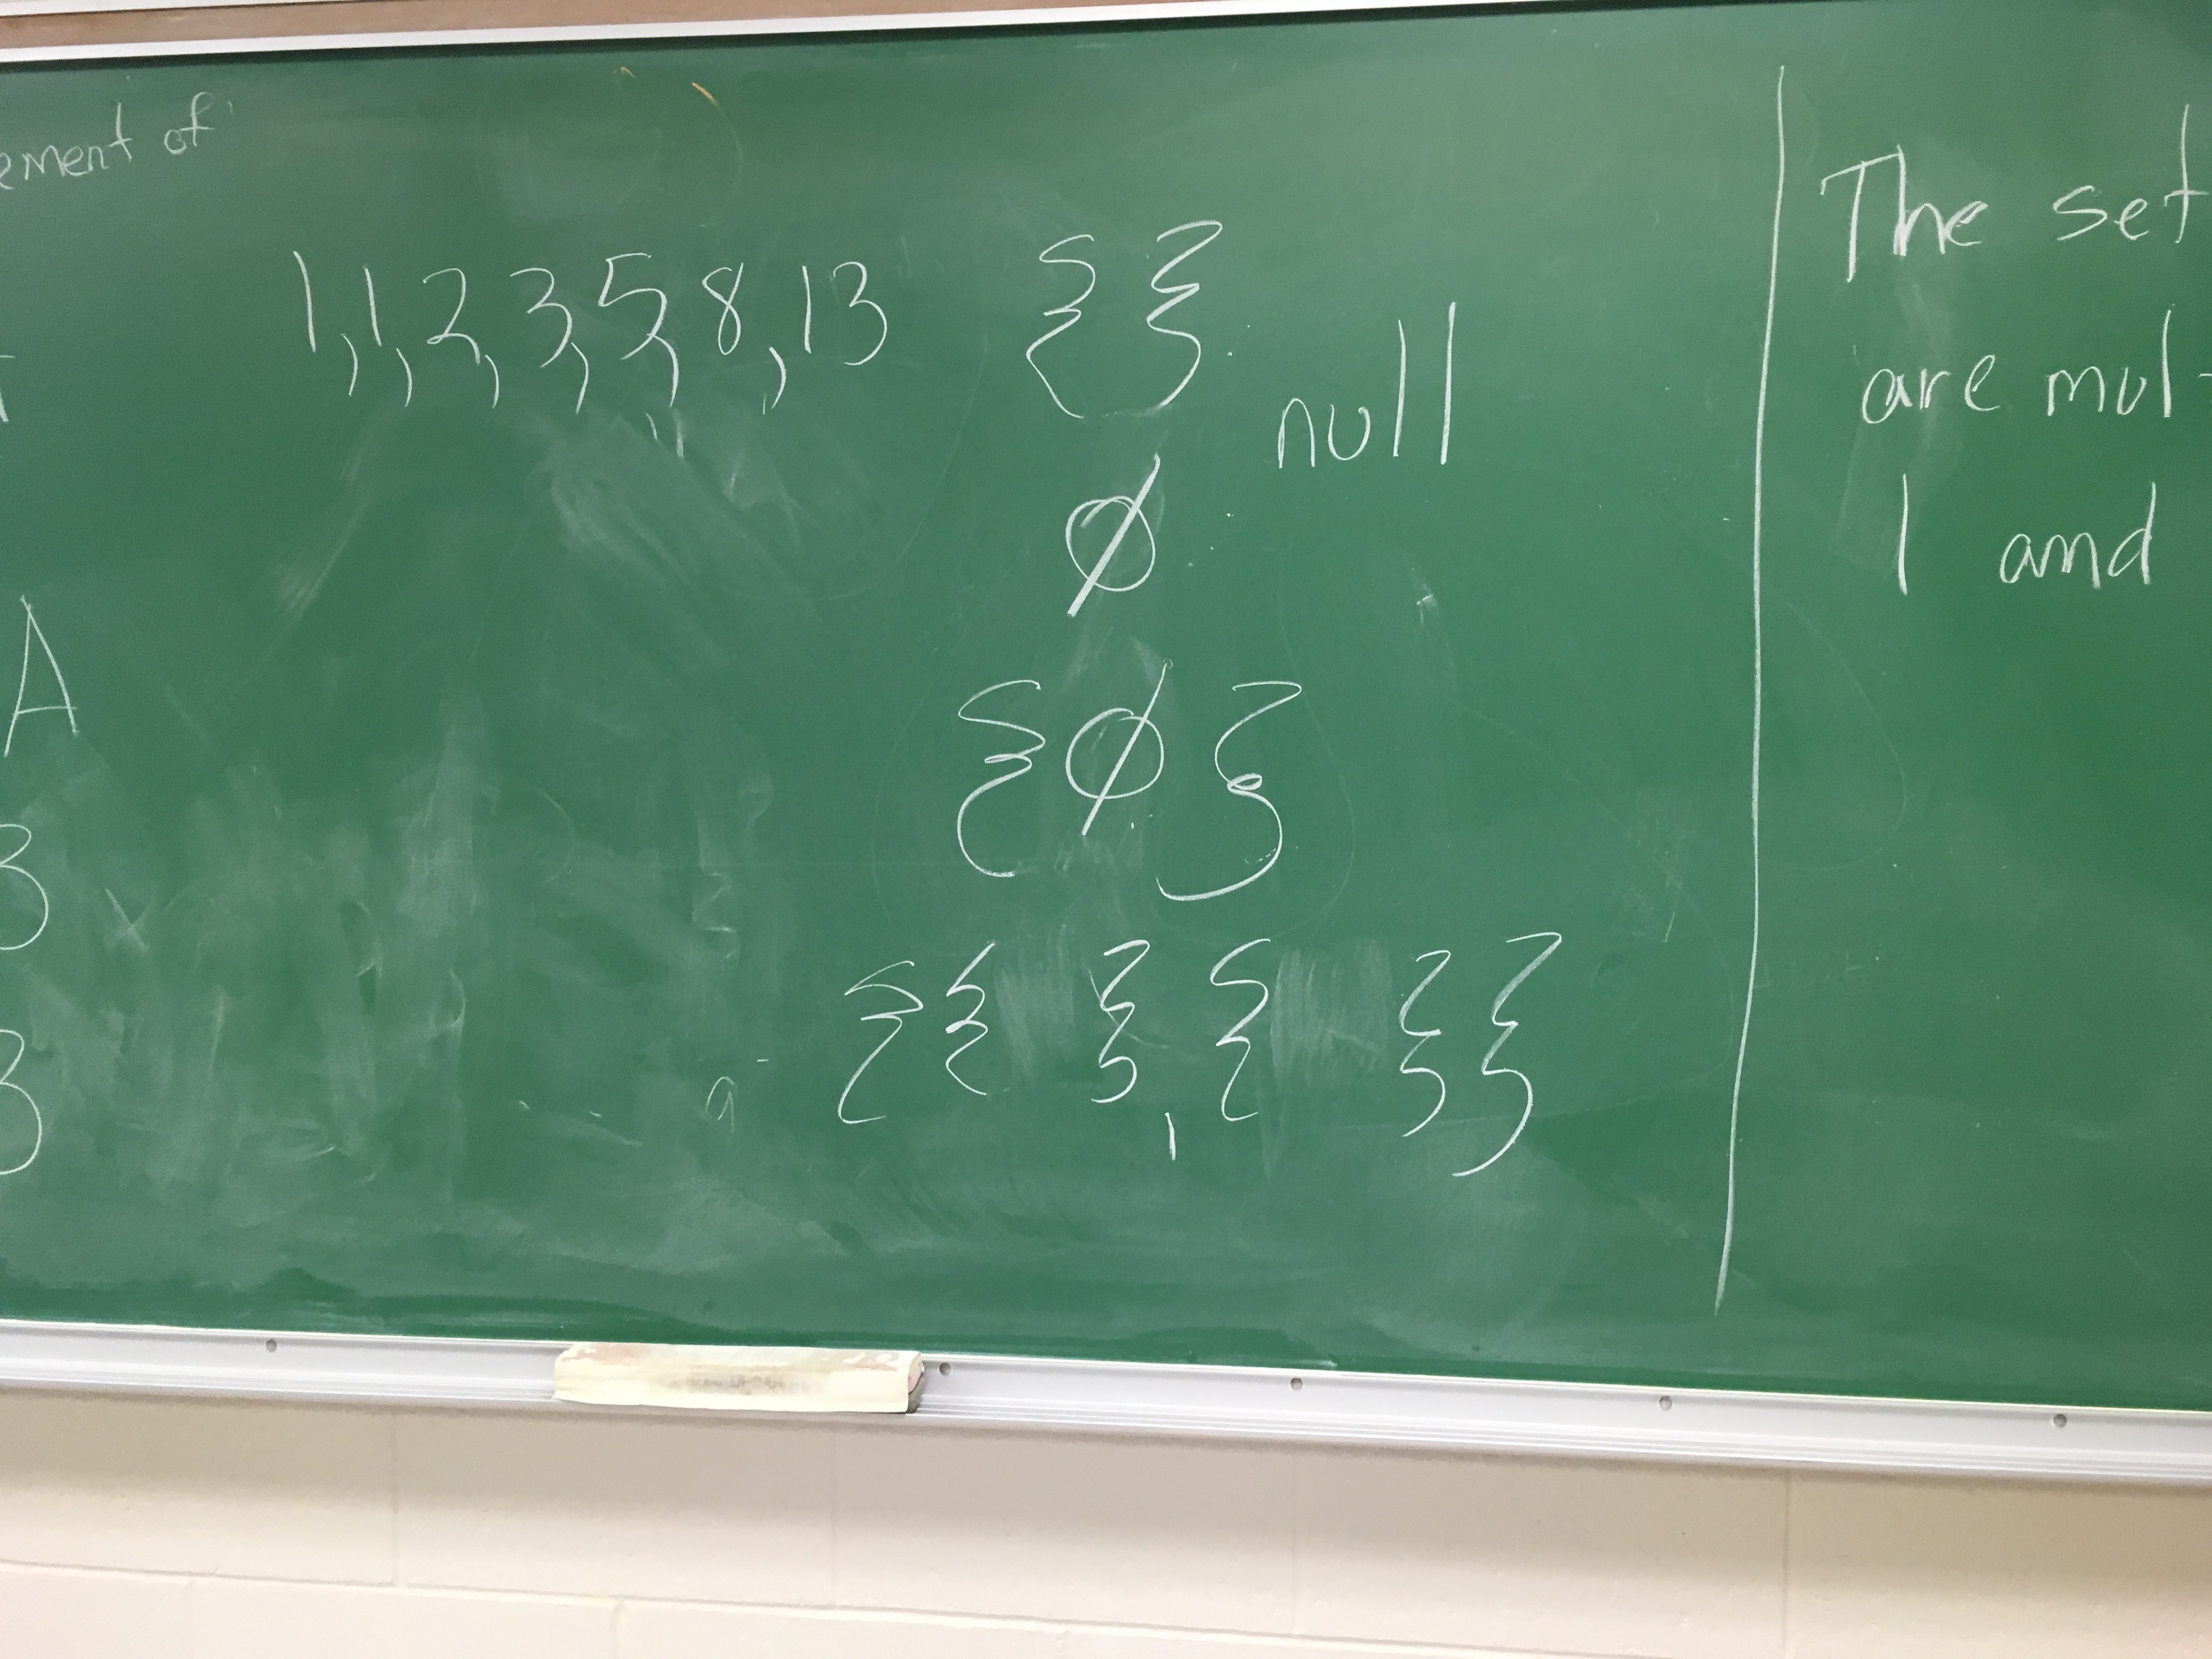 ement of
1, 1, 2, 3, 5, 8, 13
{ }
null
∅
{∅}
{{ }, { }}
A
B
B
The set
are mul
1 and